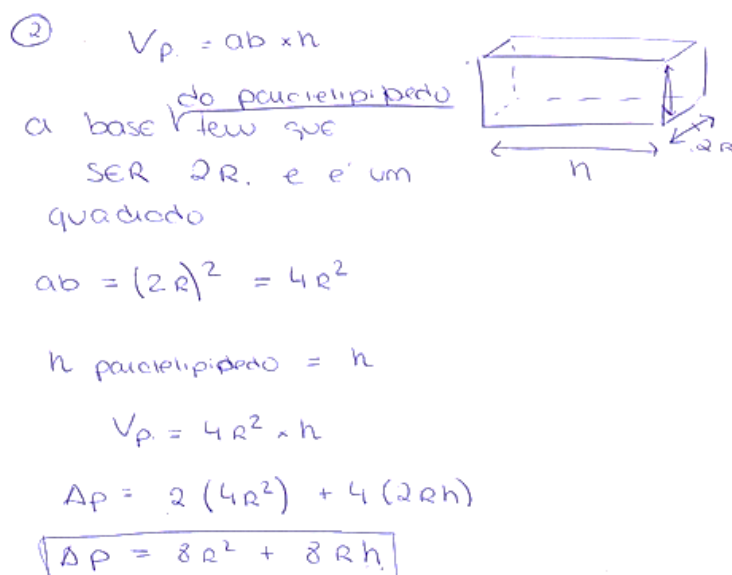 ② Vp. = ab × h
do paralelipipedo
a base tem que
SER 2R. e é um
quadrado
ab = (2R)² = 4R²
h paralelipipedo = h
Vp. = 4R² × h
Ap = 2 (4R²) + 4 (2Rh)
Ap = 8R² + 8Rh
h
2R